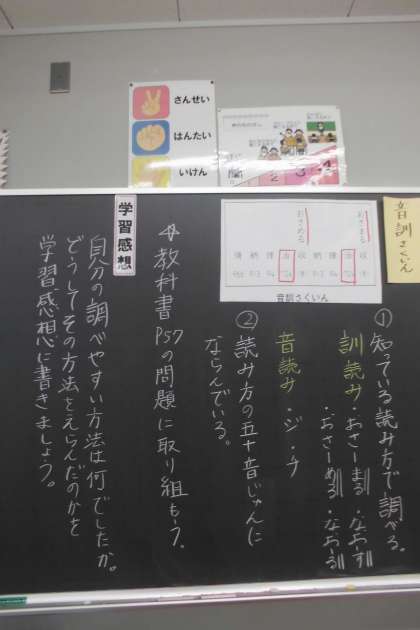 音訓さくいん
おさまる
おさめる
音訓さくいん
さんせい
はんたい
いけん
①知っている読み方で調べる。
訓読み・おさーまる・なおーす
・おさーめる・なおーる
音読み・ジ・チ
②読み方の五十音じゅんに
ならんでいる。
教科書P57の問題に取り組もう。
学習感想
自分の調べやすい方法は何でしたか。
どうしてその方法をえらんだのかを
学習感想に書きましょう。